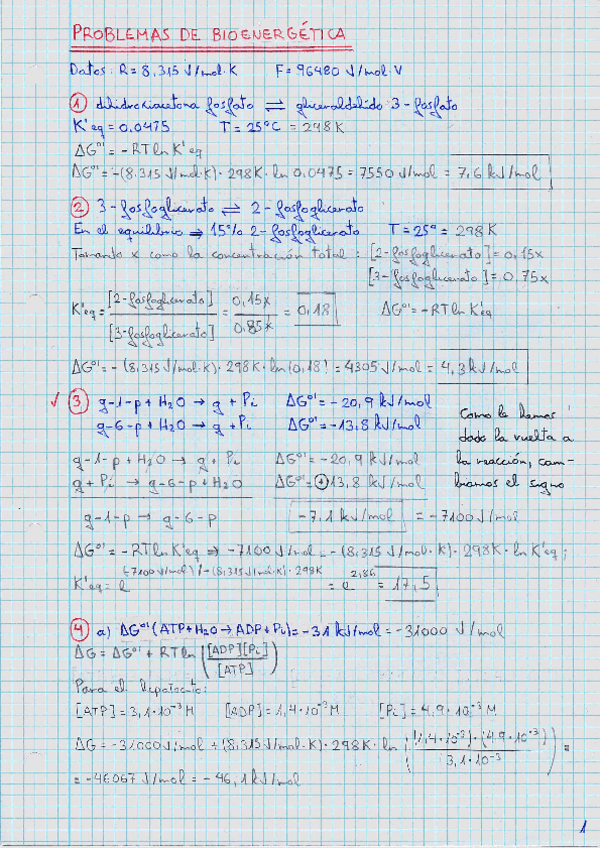 PROBLEMAS DE BIOENERGÉTICA
Datos: R = 8,315 J/mol·K F = 96480 J/mol·V
1 dihidroxiacetona fosfato ⇌ gliceraldehido 3-fosfato
K'eq = 0,0475 T = 25°C = 298K
ΔG°' = -RT ln K'eq
ΔG°' = -(8,315 J/mol·K)·298K·ln 0,0475 = 7550 J/mol = 7,6 kJ/mol
2 3-fosfoglicerato ⇌ 2-fosfoglicerato
En el equilibrio ⇒ 15% 2-fosfoglicerato T = 25° = 298K
Tomando x como la concentración total: [2-fosfoglicerato] = 0,15x
[3-fosfoglicerato] = 0,75x
K'eq = [2-fosfoglicerato] / [3-fosfoglicerato] = 0,15x / 0,85x = 0,18 ΔG°' = -RT ln K'eq
ΔG°' = -(8,315 J/mol·K)·298K·ln(0,18) = 4305 J/mol = 4,3 kJ/mol
✓ 3 g-1-p + H2O → g + Pi ΔG°' = -20,9 kJ/mol
g-6-p + H2O → g + Pi ΔG°' = -13,8 kJ/mol
Como le hemos
dado la vuelta a
la reacción, cam-
biamos el signo
g-1-p + H2O → g + Pi ΔG°' = -20,9 kJ/mol
g + Pi → g-6-p + H2O ΔG°' = +13,8 kJ/mol
g-1-p → g-6-p -7,1 kJ/mol = -7100 J/mol
ΔG°' = -RT ln K'eq ⇒ -7100 J/mol = -(8,315 J/mol·K)·298K·ln K'eq;
K'eq = e^(-7100 J/mol)/-(8,315 J/mol·K)·298K = e^2,86 = 17,5
4 a) ΔG°' (ATP + H2O → ADP + Pi) = -31 kJ/mol = -31000 J/mol
ΔG = ΔG°' + RT ln ([ADP][Pi] / [ATP])
Para el hepatocito:
[ATP] = 3,1·10⁻³ M [ADP] = 1,4·10⁻³ M [Pi] = 4,9·10⁻³ M
ΔG = -31000 J/mol + (8,315 J/mol·K)·298K·ln ((1,4·10⁻³)·(4,9·10⁻³) / 3,1·10⁻³) =
= -46067 J/mol = -46,1 kJ/mol
1